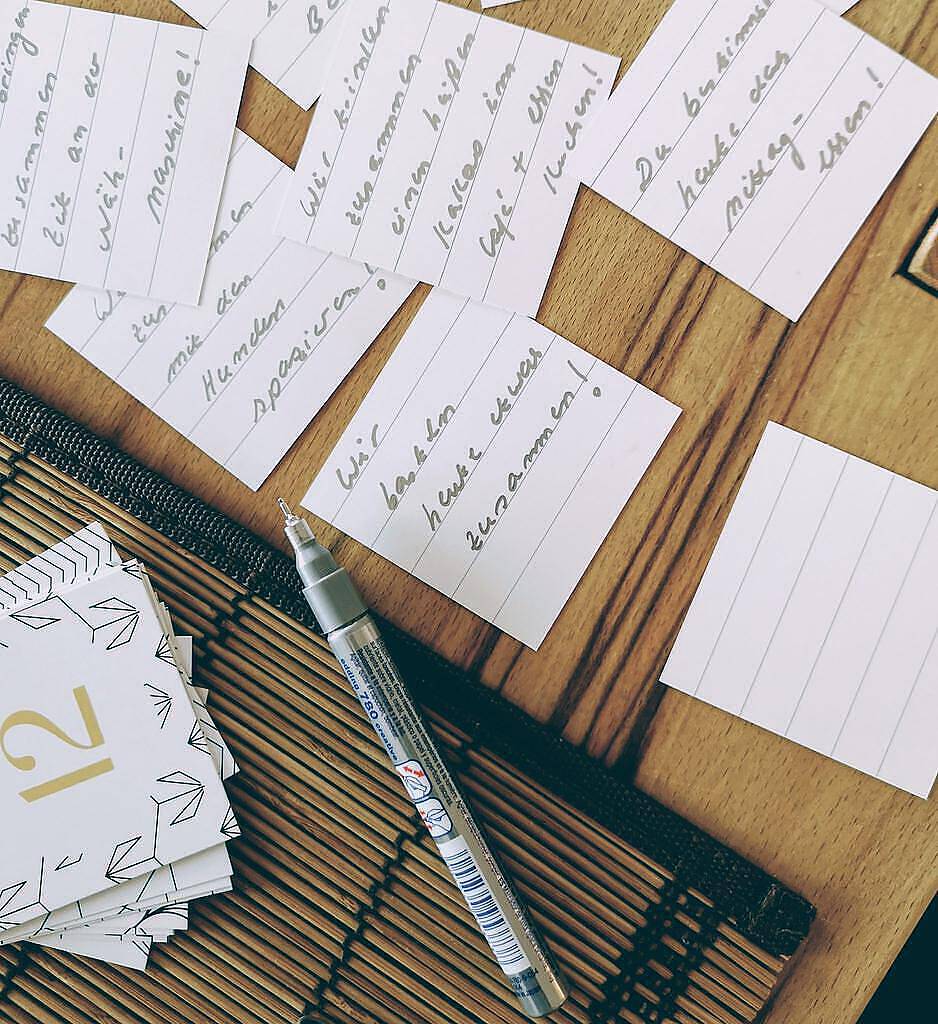 zusammen
Zeit an der
Näh-
maschine!
Wir trinken
zusammen
einen heißen
Kakao im
Café + essen
Kuchen!
Du bestimmst
heute das
Mittag-
essen!
mit den
Hunden
spazieren!
Wir
basteln
heute etwas
zusammen!
12
edding 780 creative